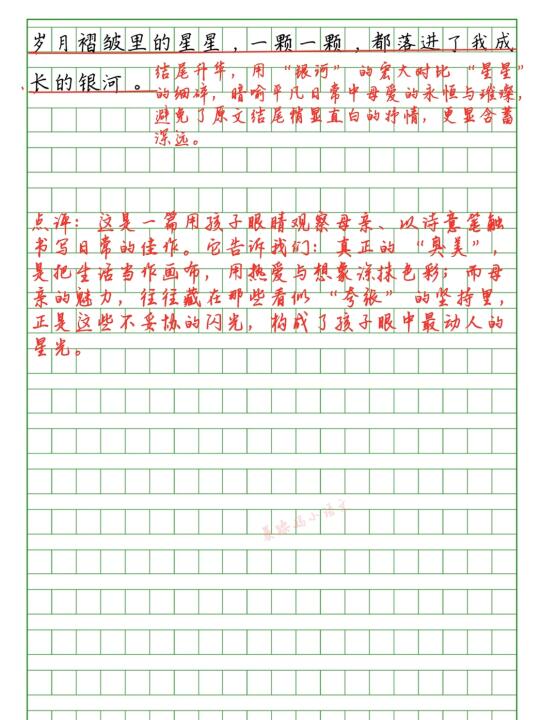 岁月褶皱里的星星，一颗一颗，都落进了我成
长的银河。
结尾升华，用“银河”的宏大对比“星星”
的细碎，暗喻平凡日常中母爱的永恒与璀璨，
避免了原文结尾稍显直白的抒情，更显含蓄
深远。
点评：这是一篇用孩子眼睛观察母亲、以诗意笔触
书写日常的佳作。它告诉我们：真正的“臭美”，
是把生活当作画布，用热爱与想象涂抹色彩；而母
亲的魅力，往往藏在那些看似“夸张”的坚持里，
正是这些不妥协的闪光，构成了孩子眼中最动人的
星光。